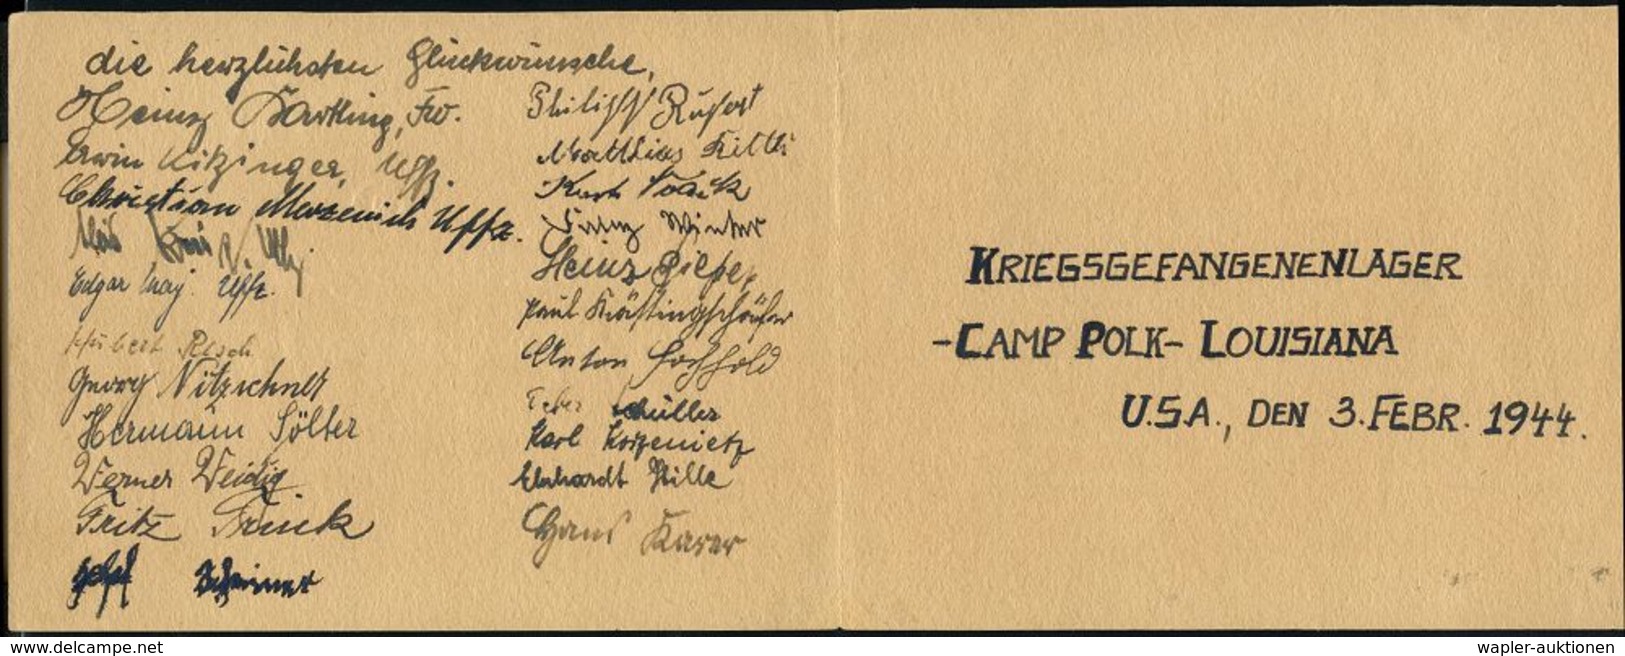 die herzlichsten Glückwünsche,
Heinz Bartling, Fw.
Erwin Kitzinger, Uffz.
Christian Merzenich Uffz.
Edgar May. Uffz.
Hubert Resch
Georg Nitzschner
Hermann Sölter
Werner Weidig
Fritz Frick
Scheiner
Philipp
Matthias
Karl
Franz Winter
Heinz Piepel
Paul Kröstingschäfer
Anton
Peter Schüller
Karl Korzenietz
Ehrhardt Hille
Hans Karer
KRIEGSGEFANGENENLAGER
-CAMP POLK- LOUISIANA
U.S.A., DEN 3. FEBR. 1944.
© delcampe.net
wapler-auktionen